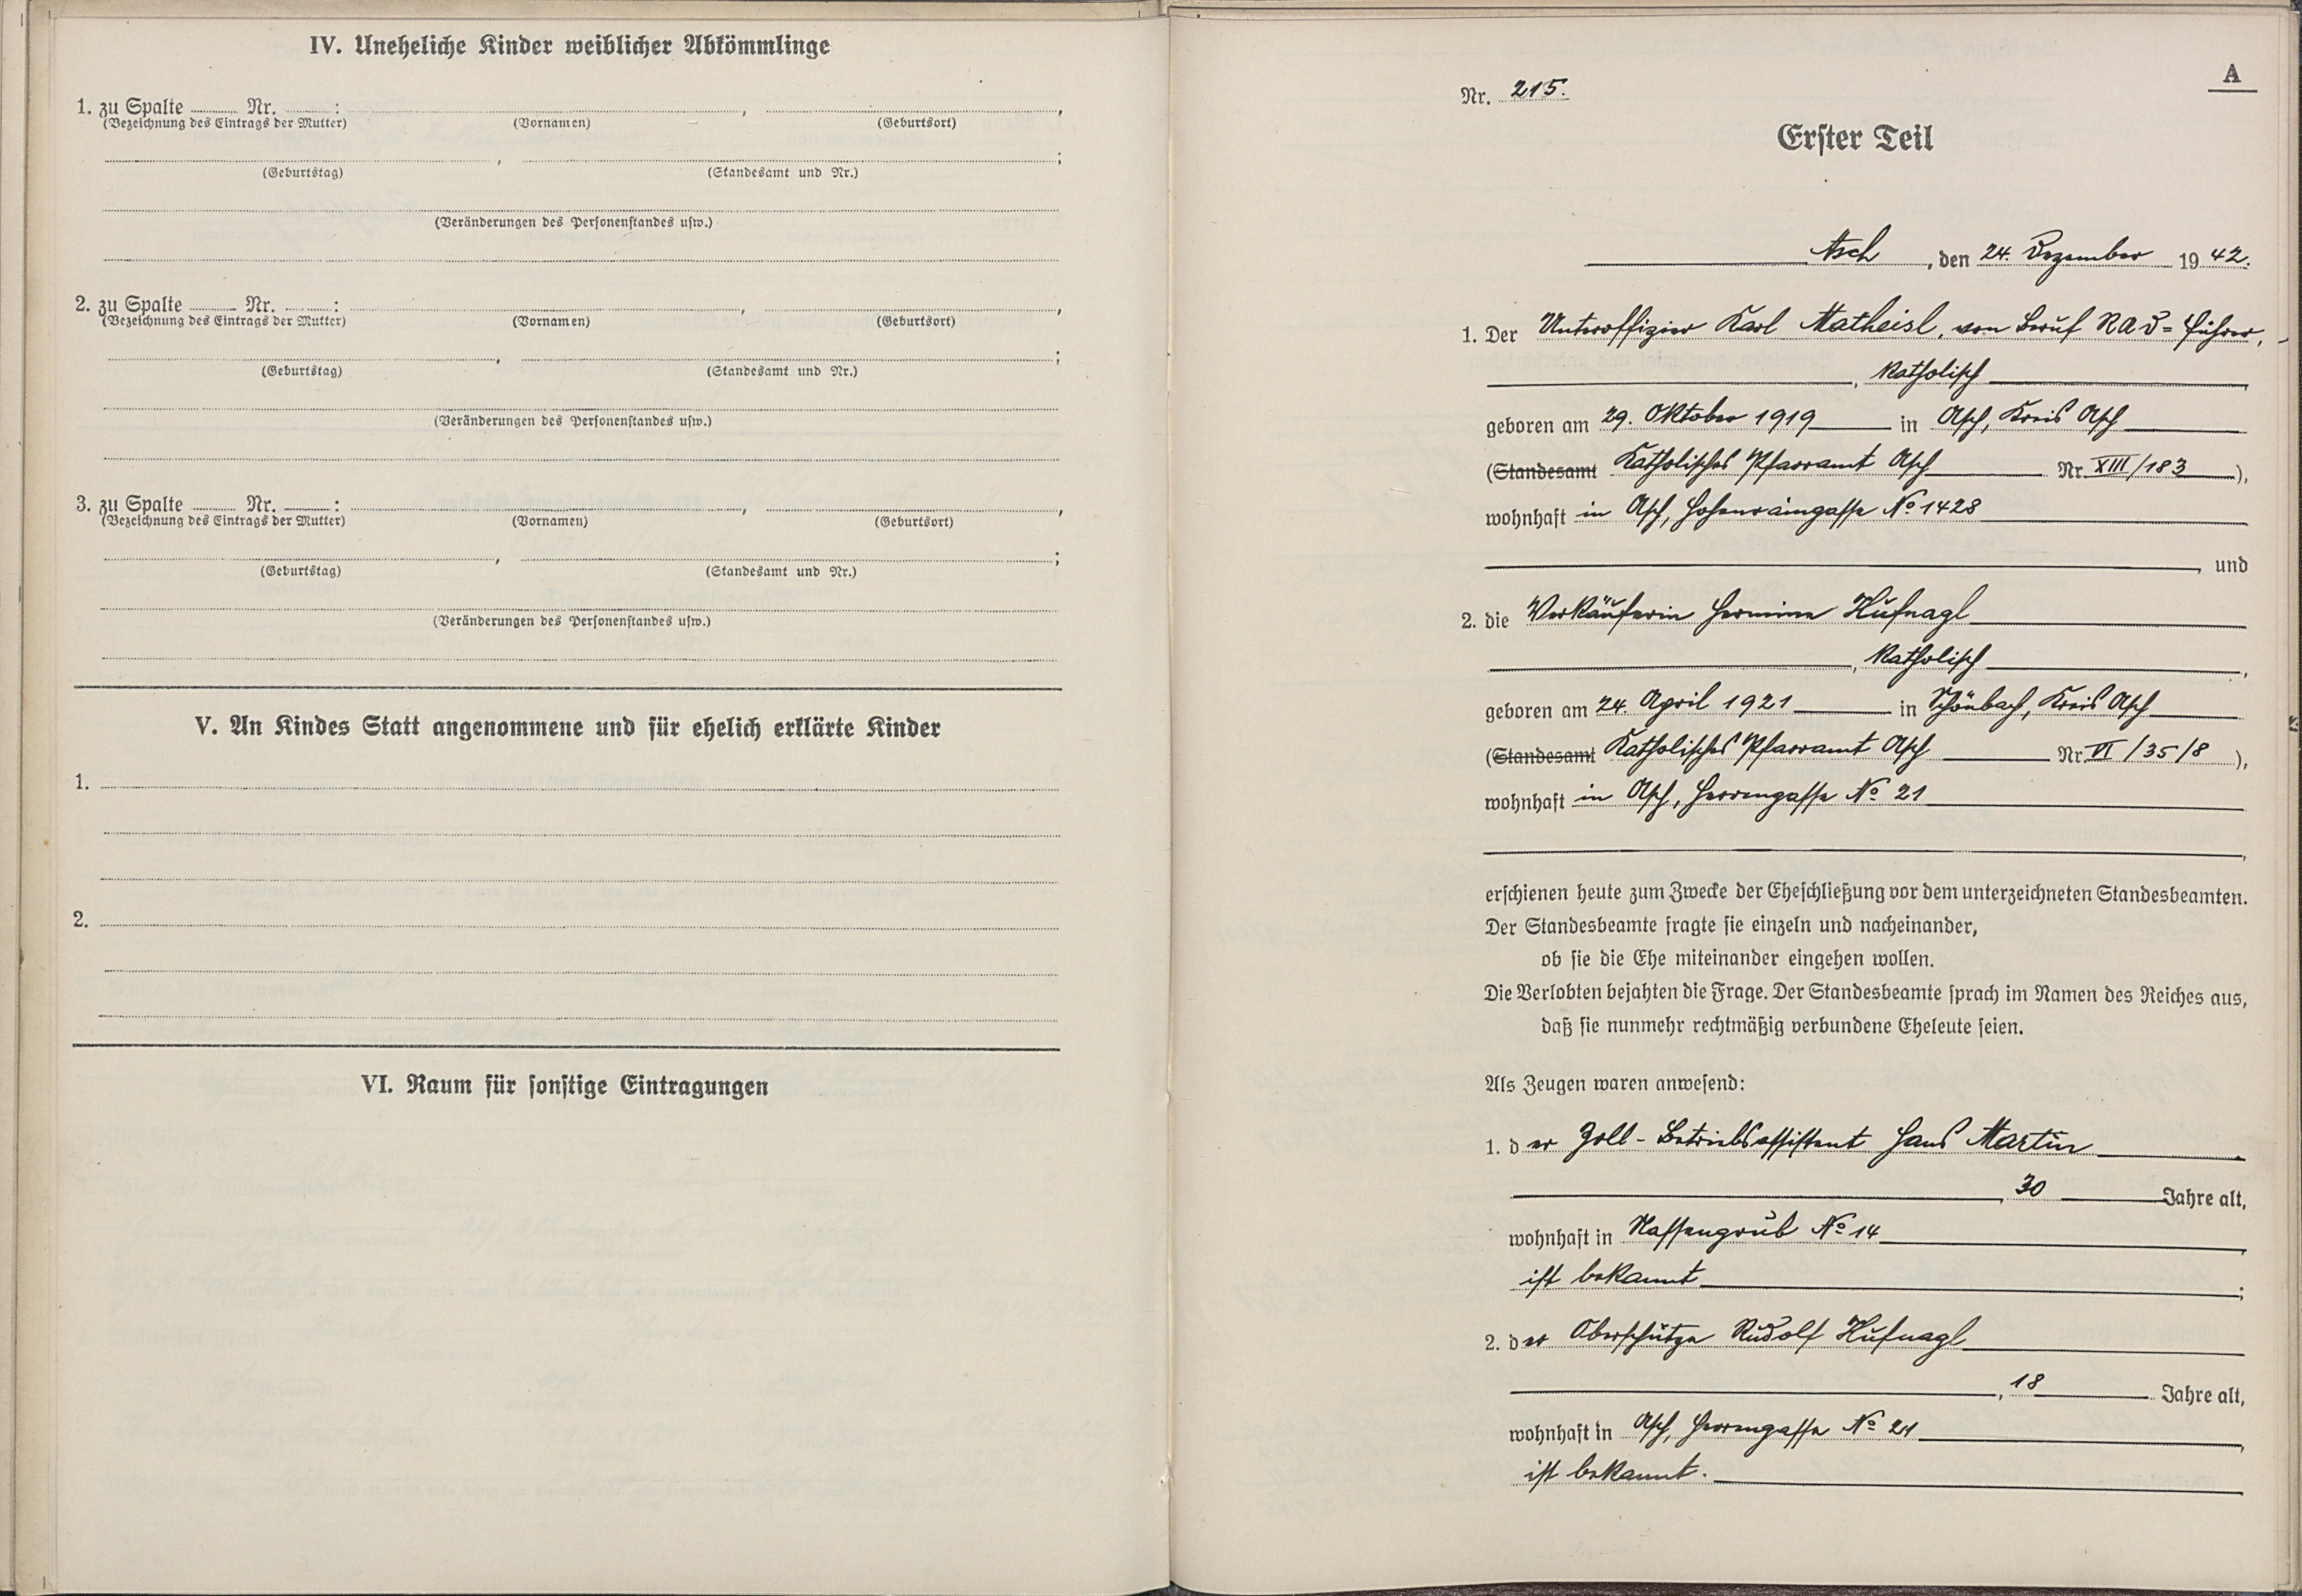 IV. Uneheliche Kinder weiblicher Abkömmlinge
1. zu Spalte ........ Nr. ........ : ........ , ........ ,
(Bezeichnung des Eintrags der Mutter) (Vornamen) (Geburtsort)
........ , ........ ;
(Geburtstag) (Standesamt und Nr.)
(Veränderungen des Personenstandes usw.)
2. zu Spalte ........ Nr. ........ : ........ , ........ ,
(Bezeichnung des Eintrags der Mutter) (Vornamen) (Geburtsort)
........ , ........ ;
(Geburtstag) (Standesamt und Nr.)
(Veränderungen des Personenstandes usw.)
3. zu Spalte ........ Nr. ........ : ........ , ........ ,
(Bezeichnung des Eintrags der Mutter) (Vornamen) (Geburtsort)
........ , ........ ;
(Geburtstag) (Standesamt und Nr.)
(Veränderungen des Personenstandes usw.)
V. An Kindes Statt angenommene und für ehelich erklärte Kinder
1.
2.
VI. Raum für sonstige Eintragungen
A
Nr. 215.
Erster Teil
Asch, den 24. Dezember 1942.
1. Der Unteroffizier Karl Matheisl, von Beruf RAD=Führer,
, katholisch
geboren am 29. Oktober 1919 in Asch, Kreis Asch
(Standesamt Katholisches Pfarramt Asch Nr. XIII/183),
wohnhaft in Asch, Hohenraingasse No 1428
, und
2. die Verkäuferin Hermine Hufnagl
, katholisch ,
geboren am 24. April 1921 in Schönbach, Kreis Asch
(Standesamt Katholisches Pfarramt Asch Nr. VI/35/8),
wohnhaft in Asch, Herrengasse No 21
,
erschienen heute zum Zwecke der Eheschließung vor dem unterzeichneten Standesbeamten.
Der Standesbeamte fragte sie einzeln und nacheinander,
ob sie die Ehe miteinander eingehen wollen.
Die Verlobten bejahten die Frage. Der Standesbeamte sprach im Namen des Reiches aus,
daß sie nunmehr rechtmäßig verbundene Eheleute seien.
Als Zeugen waren anwesend:
1. der Zoll-Betriebsassistent Hans Martin
, 30 Jahre alt,
wohnhaft in Nassengrub No 14
ist bekannt ;
2. der Oberschütze Rudolf Hufnagl
, 18 Jahre alt,
wohnhaft in Asch, Herrengasse No 21 ,
ist bekannt.